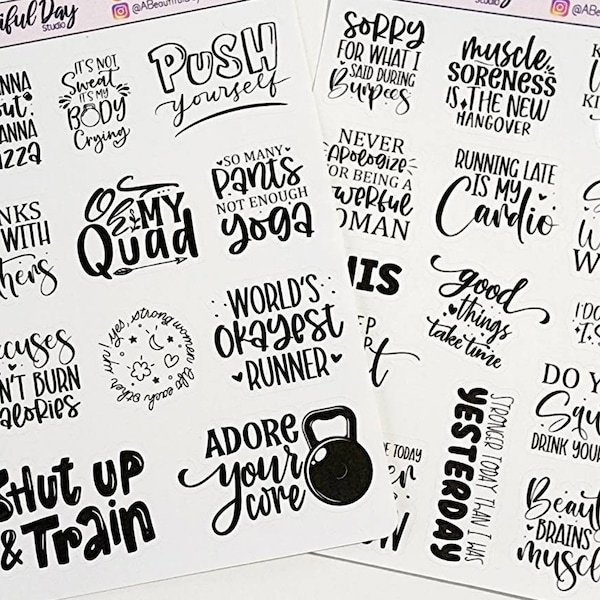 iful Day
Studio
@ABeautifulD
ANNA
IT'S NOT
Sweat
IT'S MY
BODY
Crying
PUSH
yourself
WITH
Oh MY
Quad
SO MANY
Pants
NOT ENOUGH
yoga
yes, strong women lift each other up!
WORLD'S
Okayest
RUNNER
N'T BURN
calories
SHUT UP
& Train
ADORE
your
core
Day
Studio
@ABeau
SORRY
FOR WHAT I
SAID DURING
Burpees
muscle
SORENESS
IS THE NEW
HANGOVER
NEVER
Apologize
FOR BEING A
Powerful
WOMAN
RUNNING LATE
IS MY
Cardio
good
things
take time
STRONGER TODAY THAN I WAS
YESTERDAY
TODAY
DO Y
Squ
DRINK YOUR
Beau
BRAINS
muscl